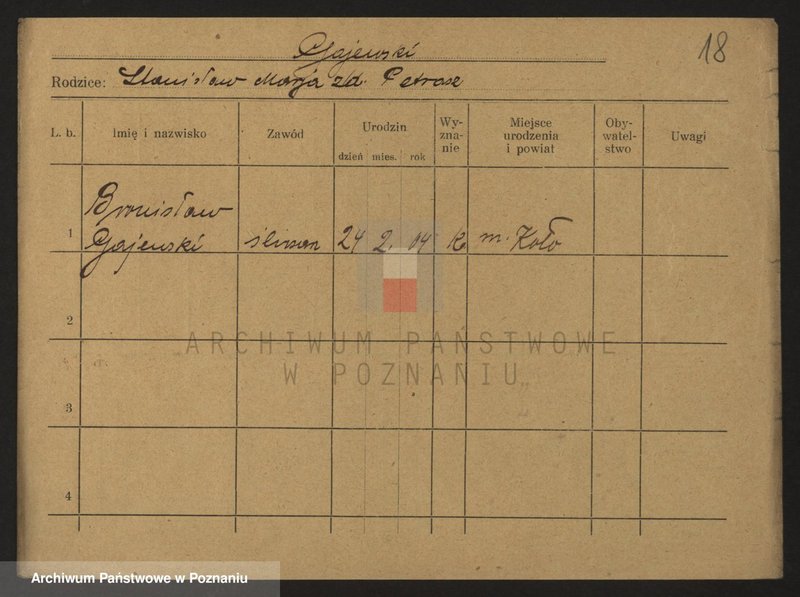 Gajewski
18
Rodzice: Stanisław Marja zd. Petrasz
L. b. Imię i nazwisko Zawód Urodzin dzień mies. rok Wy-zna-nie Miejsce urodzenia i powiat Oby-watel-stwo Uwagi
Bronisław
1 Gajewski ślusarz 24 2. 04 k m. Koło
2
ARCHIWUM PAŃSTWOWE
W POZNANIU
3
4
Archiwum Państwowe w Poznaniu